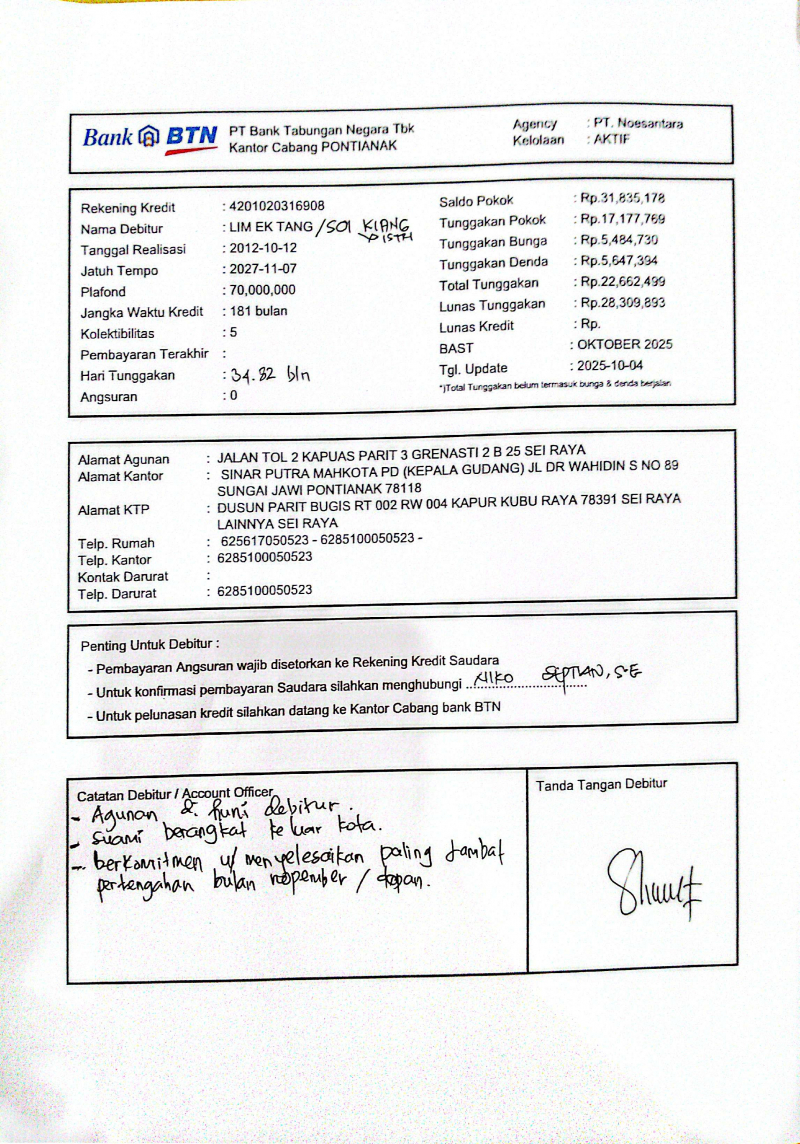 Bank BTN PT Bank Tabungan Negara Tbk
Kantor Cabang PONTIANAK
Agency : PT. Noesantara
Kelolaan : AKTIF
Rekening Kredit : 4201020316908
Nama Debitur : LIM EK TANG / SOI KIANG
→ ISTRI
Tanggal Realisasi : 2012-10-12
Jatuh Tempo : 2027-11-07
Plafond : 70,000,000
Jangka Waktu Kredit : 181 bulan
Kolektibilitas : 5
Pembayaran Terakhir :
Hari Tunggakan : 34.82 bln
Angsuran : 0
Saldo Pokok : Rp.31,835,178
Tunggakan Pokok : Rp.17,177,769
Tunggakan Bunga : Rp.5,484,730
Tunggakan Denda : Rp.5,647,394
Total Tunggakan : Rp.22,662,499
Lunas Tunggakan : Rp.28,309,893
Lunas Kredit : Rp.
BAST : OKTOBER 2025
Tgl. Update : 2025-10-04
*)Total Tunggakan belum termasuk bunga & denda berjalan
Alamat Agunan : JALAN TOL 2 KAPUAS PARIT 3 GRENASTI 2 B 25 SEI RAYA
Alamat Kantor : SINAR PUTRA MAHKOTA PD (KEPALA GUDANG) JL DR WAHIDIN S NO 89
SUNGAI JAWI PONTIANAK 78118
Alamat KTP : DUSUN PARIT BUGIS RT 002 RW 004 KAPUR KUBU RAYA 78391 SEI RAYA
LAINNYA SEI RAYA
Telp. Rumah : 625617050523 - 6285100050523 -
Telp. Kantor : 6285100050523
Kontak Darurat :
Telp. Darurat : 6285100050523
Penting Untuk Debitur :
- Pembayaran Angsuran wajib disetorkan ke Rekening Kredit Saudara
- Untuk konfirmasi pembayaran Saudara silahkan menghubungi NIKO SEPTIAN, S.E
- Untuk pelunasan kredit silahkan datang ke Kantor Cabang bank BTN
Catatan Debitur / Account Officer
- Agunan di huni debitur.
- suami berangkat ke luar kota.
- berkomitmen u/ menyelesaikan paling lambat
pertengahan bulan nopember / depan.
Tanda Tangan Debitur